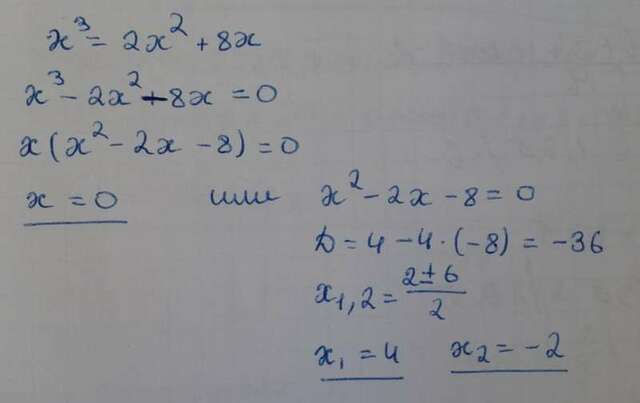 x³ = 2x² + 8x
x³ - 2x² - 8x = 0
x(x² - 2x - 8) = 0
x = 0 или x² - 2x - 8 = 0
D = 4 - 4·(-8) = -36
x₁,₂ = (2 ± 6)/2
x₁ = 4 x₂ = -2